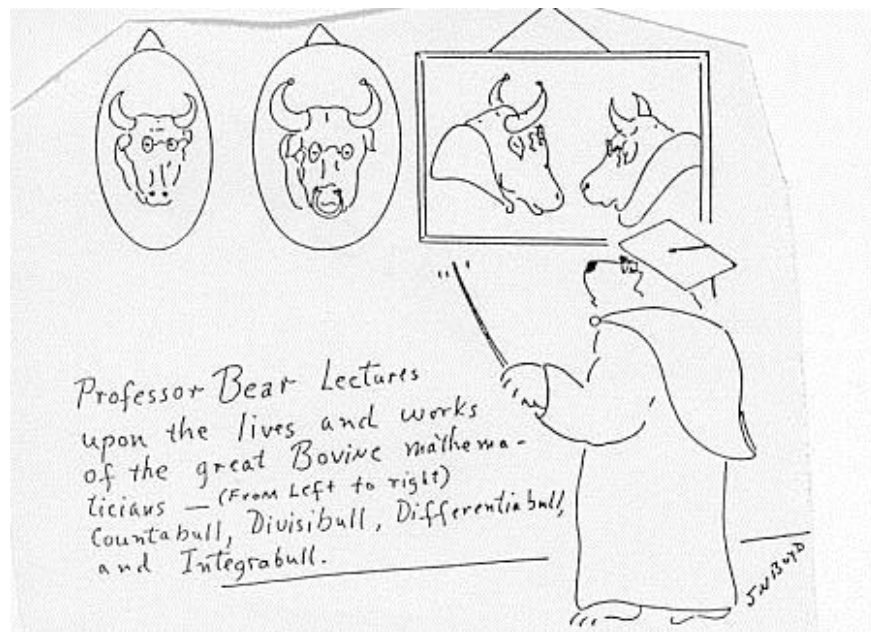 Professor Bear Lectures
upon the lives and works
of the great Bovine mathema-
ticians — (From Left to right)
Countabull, Divisibull, Differentiabull,
and Integrabull.
JN Boyd